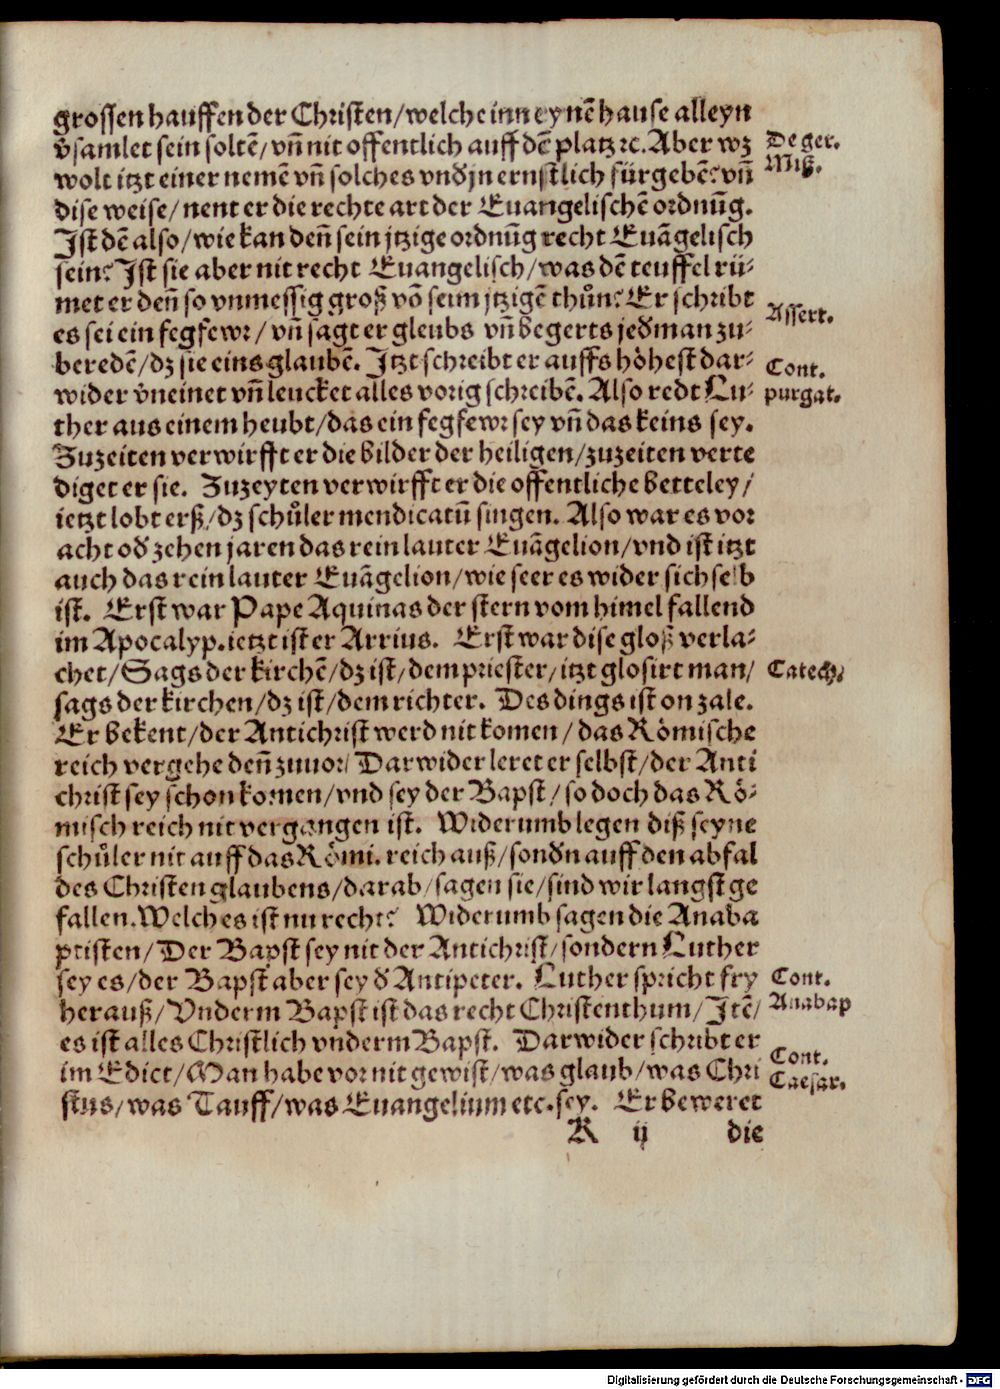 grossen hauffen der Christen/welche inn eynē hause alleyn
v̄samlet sein soltē/vn̄ nit offentlich auff dē platz ꝛc. Aber wz
De ger.
Miß.
wolt itzt einer nemē vn̄ solches vnd jn ernstlich fürgebē? vn̄
dise weise/nent er die rechte art der Euangelischē ordnūg.
Ist dē also/wie kan den̄ sein jtzige ordnūg recht Euāgelisch
sein? Ist sie aber nit recht Euangelisch/was dē teuffel rü⸗
met er den̄ so vnmessig groß vō seim jtzigē thůn? Er schribt
Assert.
es sei ein fegfewr/vn̄ sagt er gleubs vn̄ begerts jedman zu⸗
beredē/dz sie eins glaubē. Itzt schreibt er auffs höhest dar⸗
Cont.
purgat.
wider v̄neinet vn̄ leucket alles vorig schreibē. Also redt Lu⸗
ther aus einem heubt/das ein fegfewr sey vn̄ das keins sey.
Zuzeiten verwirfft er die bilder der heiligen/zuzeiten verte
diget er sie. Zuzeyten verwirfft er die offentliche betteley/
ietzt lobt erß/dz schůler mendicatū singen. Also war es vor
acht od zehen jaren das rein lauter Euāgelion/vnd ist itzt
auch das rein lauter Euāgelion/wie seer es wider sich selb
ist. Erst war Pape Aquinas der stern vom himel fallend
im Apocalyp. ietzt ist er Arrius. Erst war dise gloß verla⸗
chet/Sags der kirchē/dz ist/dem priester/itzt glosirt man/
Catech.
sags der kirchen/dz ist/dem richter. Des dings ist on zale.
Er bekent/der Antichrist werd nit komen/das Römische
reich vergehe den̄ zuuor/Darwider leret er selbst/der Anti
christ sey schon komen/vnd sey der Bapst/so doch das Rö⸗
misch reich nit vergangen ist. Widerumb legen diß seyne
schůler nit auff das Römi. reich auß/sondn auff den abfal
des Christen glaubens/darab/sagen sie/sind wir langst ge
fallen. Welch es ist nu recht? Widerumb sagen die Anaba
ptisten/Der Bapst sey nit der Antichrist/sondern Luther
sey es/der Bapst aber sey d Antipeter. Luther spricht fry
Cont.
Anabap
herauß/Vnderm Bapst ist das recht Christenthum/Itē/
es ist alles Christlich vnderm Bapst. Darwider schribt er
Cont.
Caesar.
im Edict/Man habe vor nit gewist/was glaub/was Chri
stus/was Tauff/was Euangelium etc. sey. Er beweret
R ij die
Digitalisierung gefördert durch die Deutsche Forschungsgemeinschaft - DFG